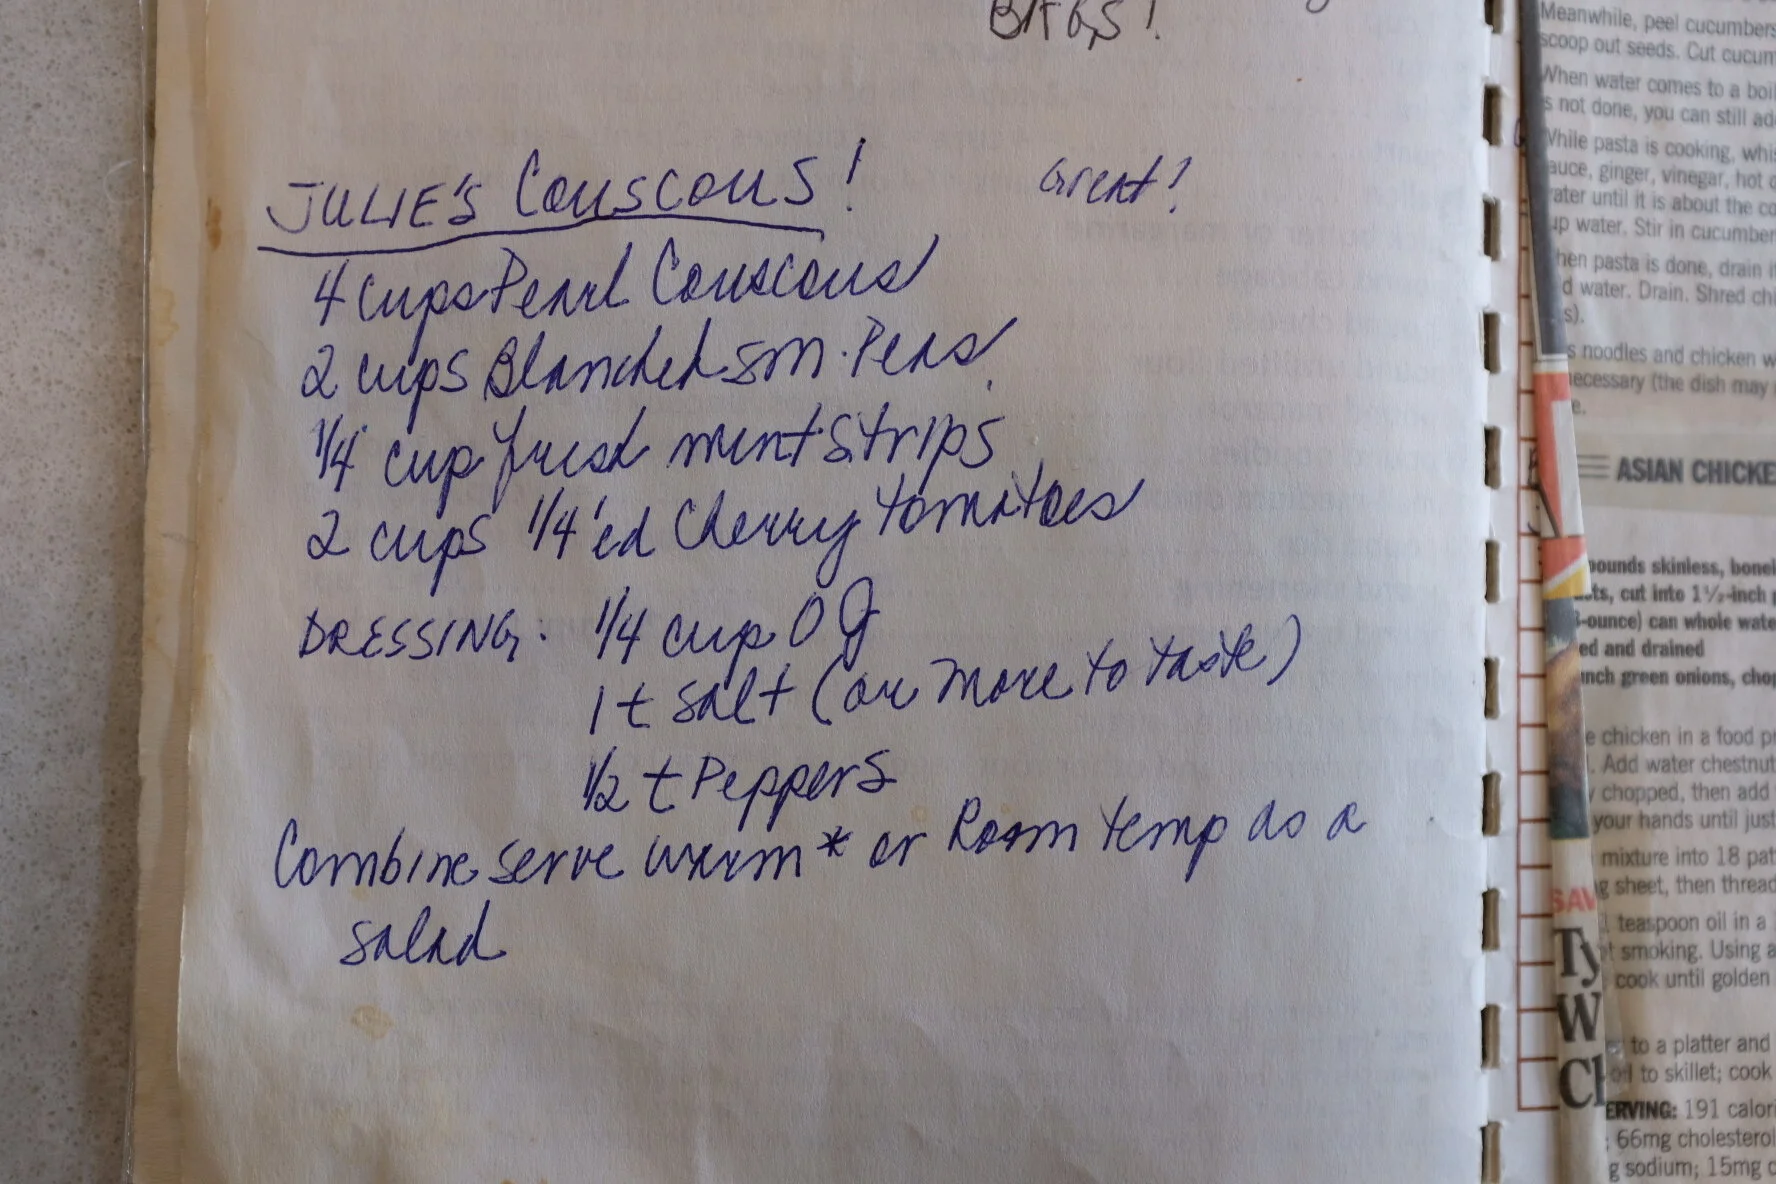 BAGS!
JULIE'S COUSCOUS! Great!
4 cups Pearl Couscous
2 cups Blanched sm. Peas
1/4 cup fresh mint strips
2 cups 1/4'ed Cherry tomatoes
DRESSING. 1/4 cup O
1 t salt (or more to taste)
1/2 t Peppers
Combine serve warm* or Room temp as a
salad
Meanwhile, peel cucumbers
scoop out seeds. Cut
When water comes to a
s not done, you can still
While pasta is cooking,
auce, ginger, vinegar, hot
ater until it is about the
up water. Stir in cucumber
hen pasta is done, drain
d water. Drain. Shred
s).
s noodles and chicken
ecessary (the dish may
e.
ASIAN CHICKE
pounds skinless,
ts, cut into 1½-inch
-ounce) can whole
ed and drained
nch green onions,
e chicken in a food
. Add water
chopped, then add
your hands until just
mixture into 18
g sheet, then thread
SAV
teaspoon oil in a
t smoking. Using
cook until golden
Ty
W
Cl
to a platter and
oil to skillet; cook
ERVING: 191
; 66mg cholesterol
g sodium; 15mg